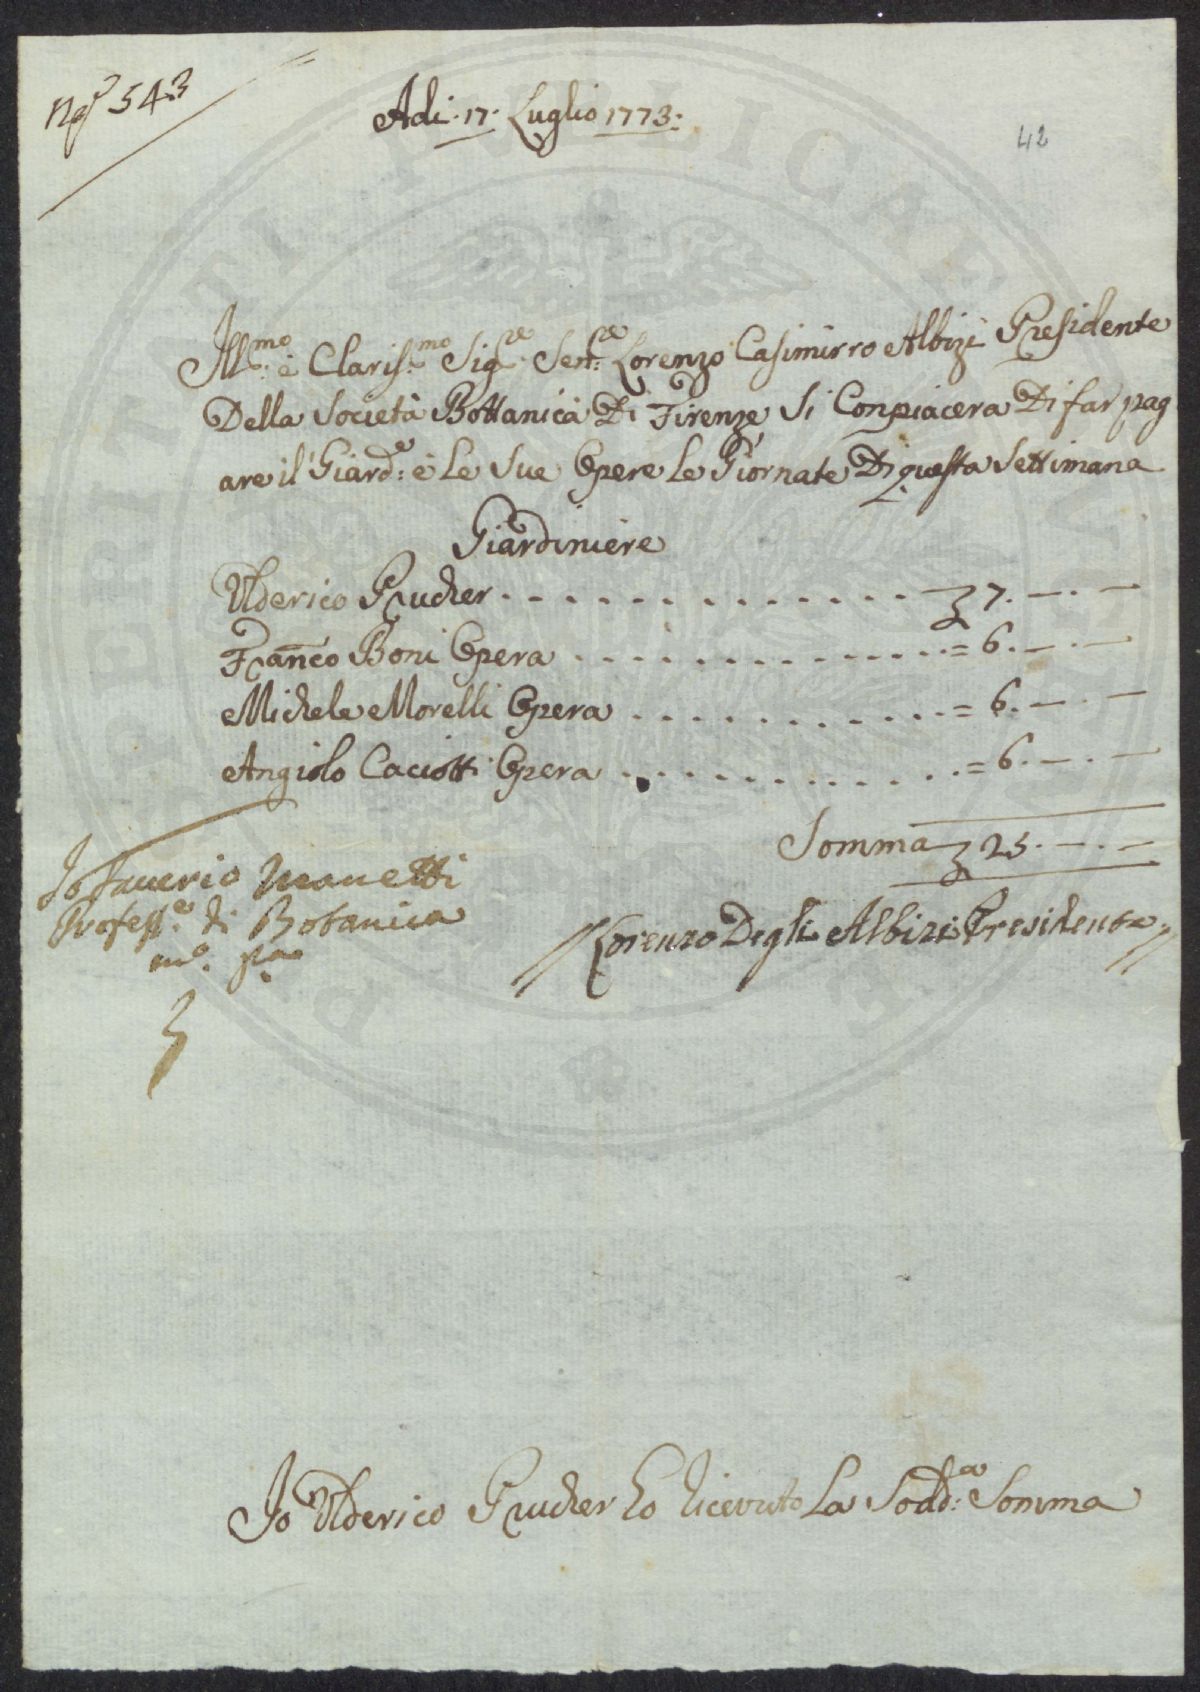 No 543
Adi 17. Luglio 1773.
42
Ill.mo è Claris.mo Sig.re Sen.re Lorenzo Casimirro Albizi Presidente
Della Società Bottanica Di Firenze Si Conpiacera Di far pag
are il Giard.e è Le Sue Opere Le Giornate Di questa Settimana
Giardiniere
Ulderico Prucher . . . . . . . . . . . . . . . . 7. — . —
Franco Boni Opera . . . . . . . . . . . . . . = 6. — . —
Michele Morelli Opera . . . . . . . . . . . . = 6. — . —
Angiolo Caciotti Opera . . . . . . . . . . . . = 6. — . —
Somma 25. — . —
Io Saverio Manetti
Profess.e di Botanica
m.o p.a
// Lorenzo Degli Albizi Presidente //
Io Ulderico Prucher ho Ricevuto La Sodd.a Somma